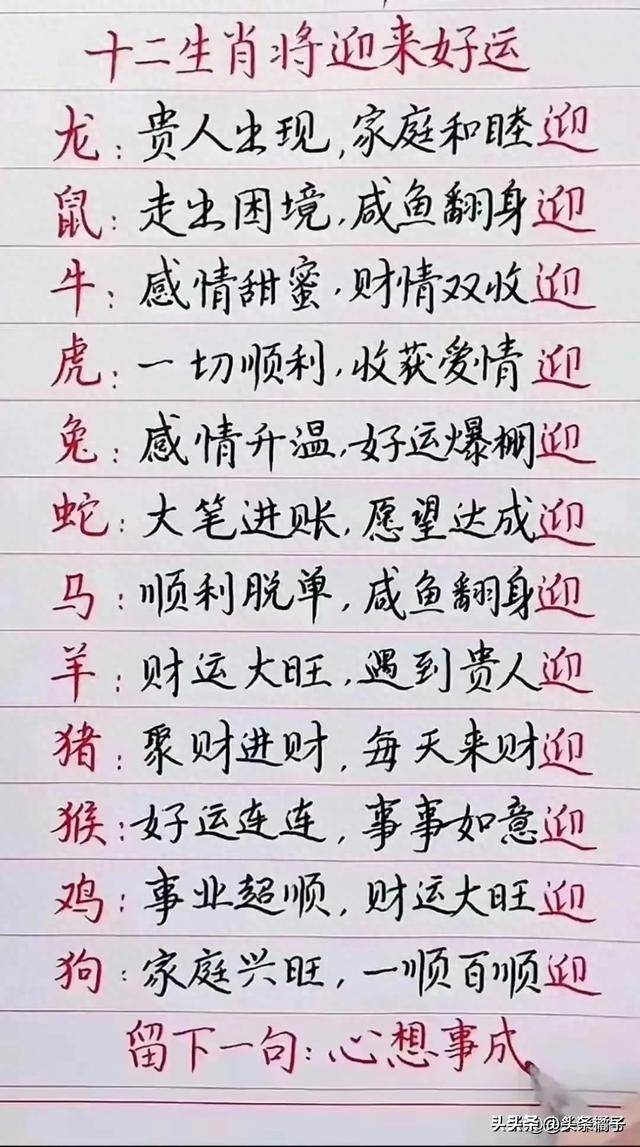 十二生肖将迎来好运
龙：贵人出现，家庭和睦迎
鼠：走出困境，咸鱼翻身迎
牛：感情甜蜜，财情双收迎
虎：一切顺利，收获爱情迎
兔：感情升温，好运爆棚迎
蛇：大笔进账，愿望达成迎
马：顺利脱单，咸鱼翻身迎
羊：财运大旺，遇到贵人迎
猪：聚财进财，每天来财迎
猴：好运连连，事事如意迎
鸡：事业超顺，财运大旺迎
狗：家庭兴旺，一顺百顺迎
留下一句：心想事成
头条 @头条橘子